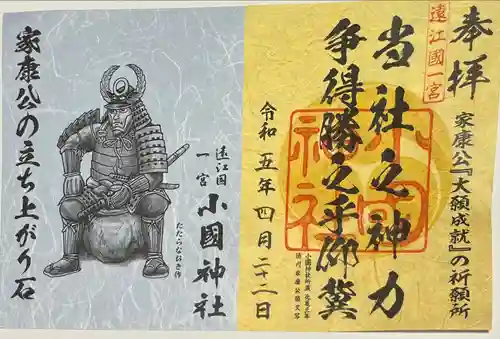 奉拝
遠江國一宮
家康公『大願成就』の祈願所
当社之神力
争得勝之乎仰冀
小國神社
令和五年四月二十二日
家康公の立ち上がり石
遠江国
一宮
小國神社
たたらなおき作